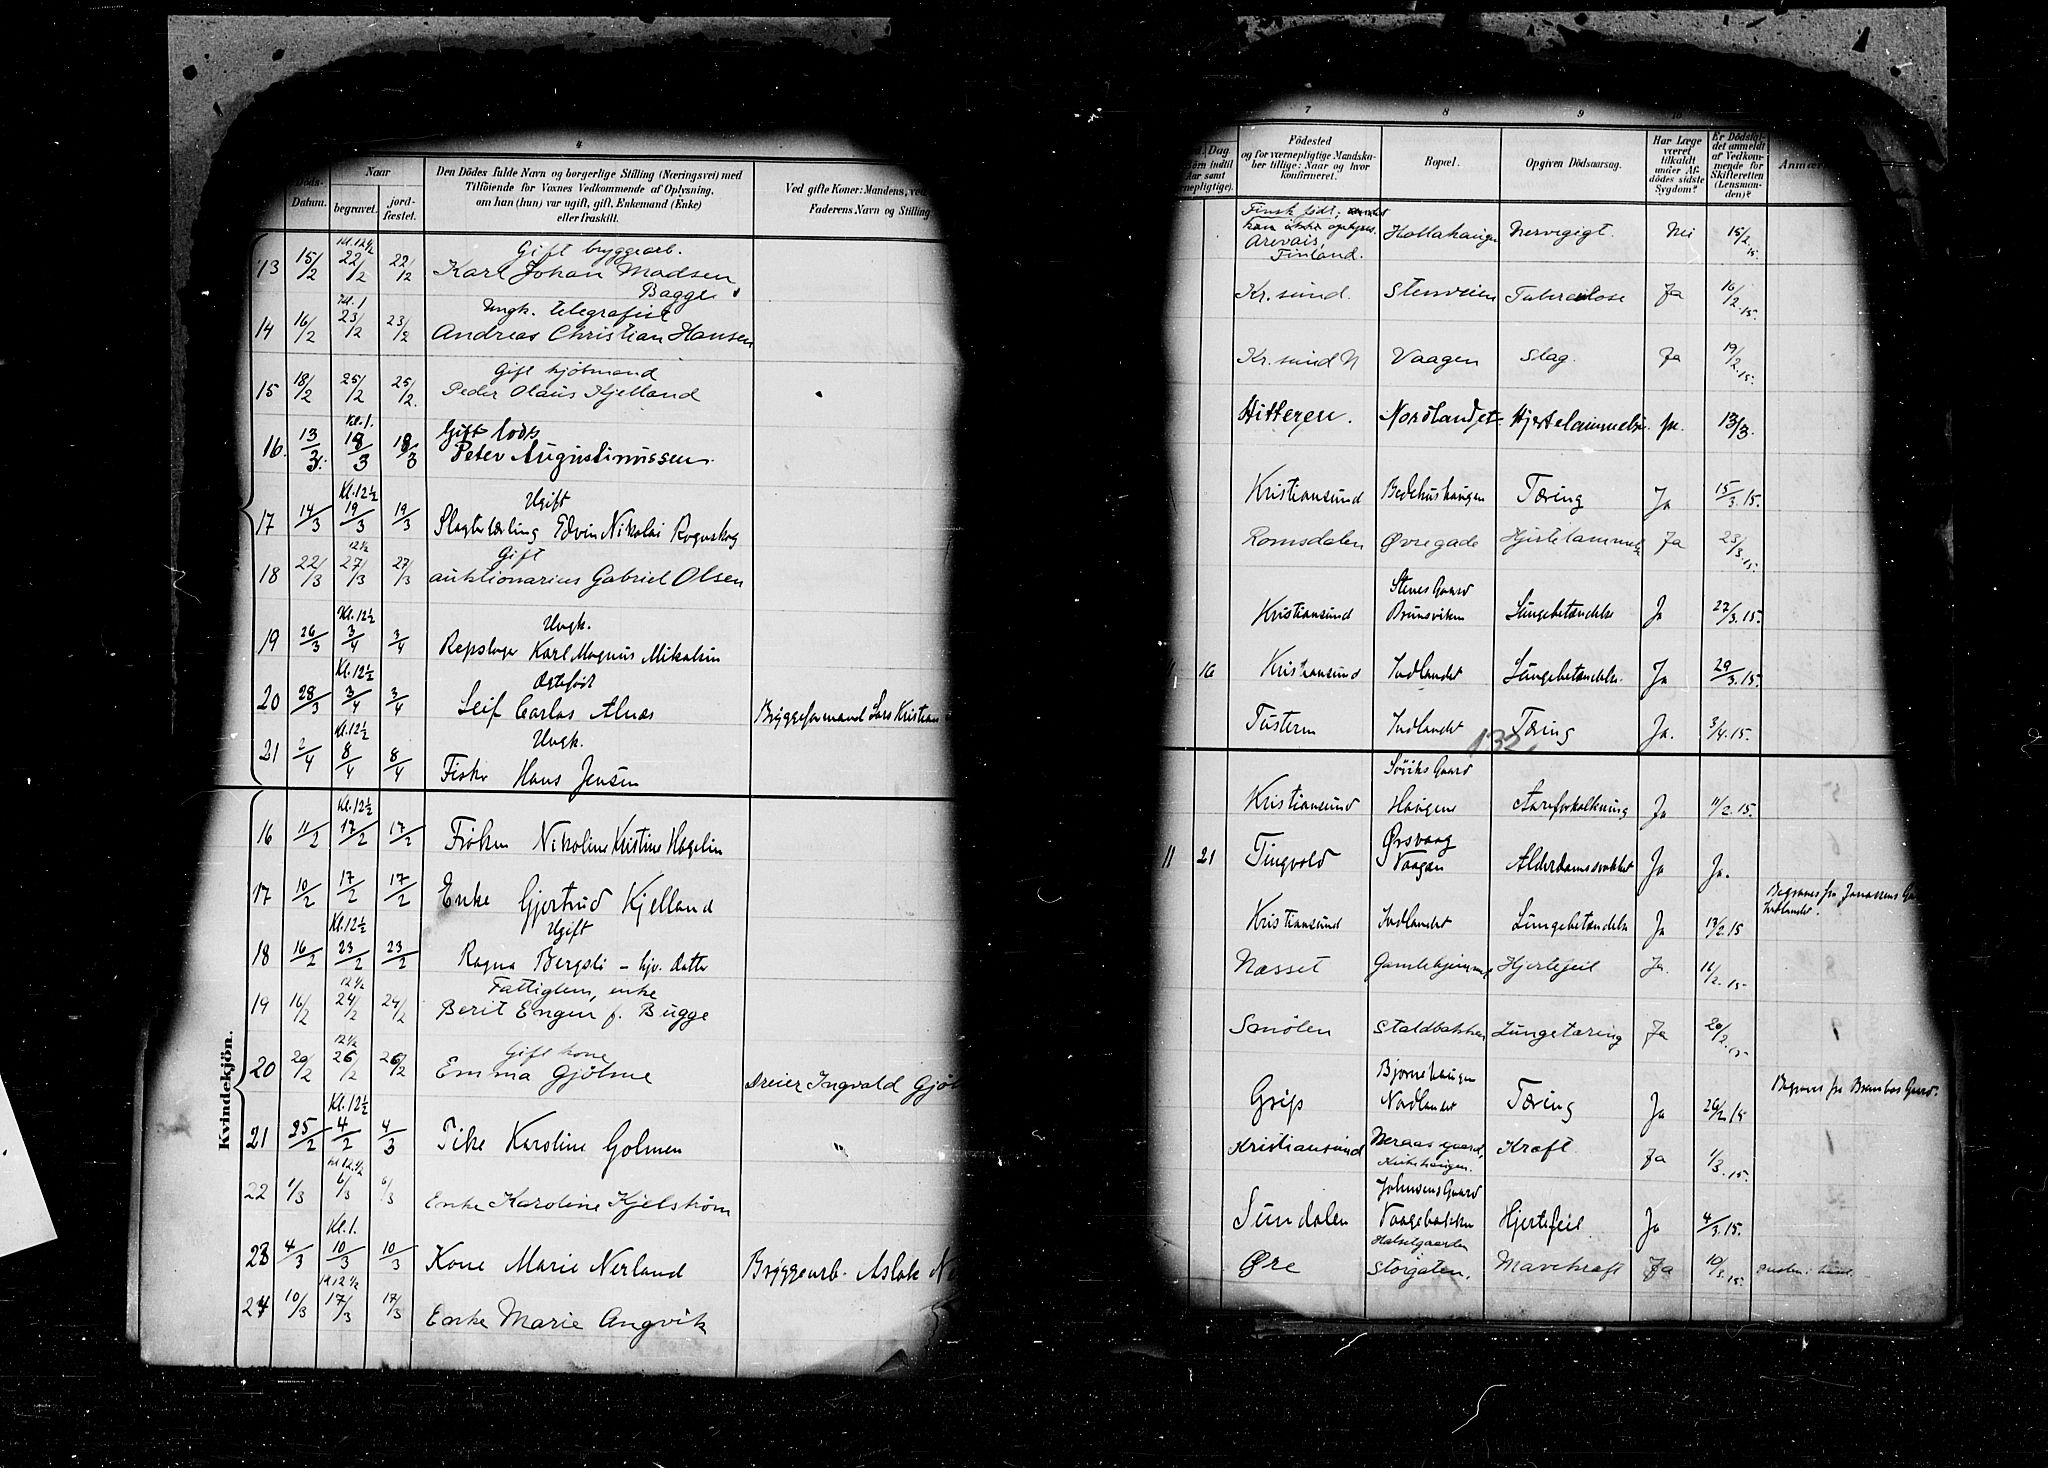 4
Döds-
Datum.
Naar
begravet.
jord-
fæstet.
Den Dödes fulde Navn og borgerlige Stilling (Næringsvei) med
Tilföiende for Voxnes Vedkommende af Oplysning,
om han (hun) var ugift, gift, Enkemand (Enke)
eller fraskilt.
Ved gifte Koner: Mandens, ved
Faderens Navn og Stilling
13 15/2 Kl. 12 1/2 22/2 22/2 Gift bryggearb.
Karl Johan Madsen
Bagge
14 16/2 Kl. 1 23/2 23/2 Ungk. telegrafist
Andreas Christian Hansen
15 18/2 25/2 25/2. Gift kjøbmand
Peder Olaus Kjelland
16. 13/3. Kl. 1. 18/3 18/3 Gift lods
Peter Augustinussen.
17 14/3 Kl. 12 1/2 19/3 19/3 Ugift
Slagterlærling Edvin Nikolai Rognskog
18 22/3 12 1/2 27/3 27/3 Gift
auktionarius Gabriel Olsen
19 26/3 Kl. 12 1/2 3/4 3/4 Ungk.
Repslager Karl Magnus Mikalsen
20 28/3 Kl. 12 1/2 3/4 3/4 Ægtefødt
Leif Carlos Alnæs Bryggeformand Lars Kristian
21 2/4 Kl. 12 1/2 8/4 8/4 Ungk.
Fisker Hans Jensen
Kvindekjön.
16 11/2 Kl. 12 1/2 17/2 17/2 Frøken Nikoline Kristine Hagelin
17 10/2 17/2 17/2 Enke Gjertrud Kjelland
18 16/2 Kl. 12 1/2 23/2 23/2 Ugift
Ragna Bergsli – hjv. datter
19 16/2 12 1/2 24/2 24/2 Fattiglem, enke
Berit Engen f. Bugge
20 20/2 12 1/2 26/2 26/2 Gift kone
Emma Gjølme Dreier Ingvald Gjøl
21 25/2 Kl. 12 1/2 4/2 4/3 Pike Karoline Golmen
22 1/3 kl 12 1/2 6/3 6/3 Enke Karoline Kjelstrøm
23 4/3 Kl. 1. 10/3 10/3 Kone Marie Nerland Bryggearb. Aslak Ne
24 10/3 kl 12 1/2 17/3 17/3 Enke Marie Angvik
7
8
9
10
Dag
Födested
og for værnepligtige Mandska-
ber tillige: Naar og hvor
konfirmeret.
Bopæl.
Opgiven Dödsaarsag.
Har Læge
været
tilkaldt
under Af-
dödes sidste
Sygdom?
Er Dödsfal-
det anmeldt
af Vedkom-
mende for
Skifteretten
(Lensman-
den)?
Anmærk
Finsk født;
Arevais,
Finland. Hollahaugen Nervegigt. Nei 15/2 15.
Kr.sund. Stenveien Tuberculose Ja 16/2.15.
Kr.sund N Vaagen Slag. Ja 19/2.15.
Hitteren. Nordlandet Hjertelammelse. ja. 13/3.
Kristiansund Bedehushaugen Tæring Ja 15/3.15.
Romsdalen Øvregade Hjertelammelse Ja 23/3.15.
Kristiansund Stenes Gaard
Brunsviken Lungebetændelse Ja 27/3.15.
11 16 Kristiansund Indlandet Lungebetændelse. Ja 29/3.15.
Tusteren Indlandet Tæring Ja. 3/4.15.
132.
Kristiansund Sørviks Gaard
Haugene Aareforkalkning Ja 11/2.15.
11 21 Tingvold Ørsvaag
Vaagen Alderdomssvakhet Ja Ja.
Kristiansund Indlandet Lungebetændelse Ja 17/2.15 Begraves fra Jonassens Ga
Indlandet.
Næsset Gamlehjemmet Hjertefeil Ja. 16/2.15
Smølen Staldbakken Lungetæring Ja 20/2.15
Grip Bjørnehaugen
Nordlandet Tæring Ja 26/2.15 Begraves fra Brembos Gaard.
Kristiansund Neraas gaard,
Kirkehaugen. Kræft. Ja 1/3.15.
Sundalen Johnsens Gaard
Vaagebakken Hjertefeil. Ja 4/3.15.
Øre Halselgaarden
Storgaten. Mavekræft Ja 10/3.15.